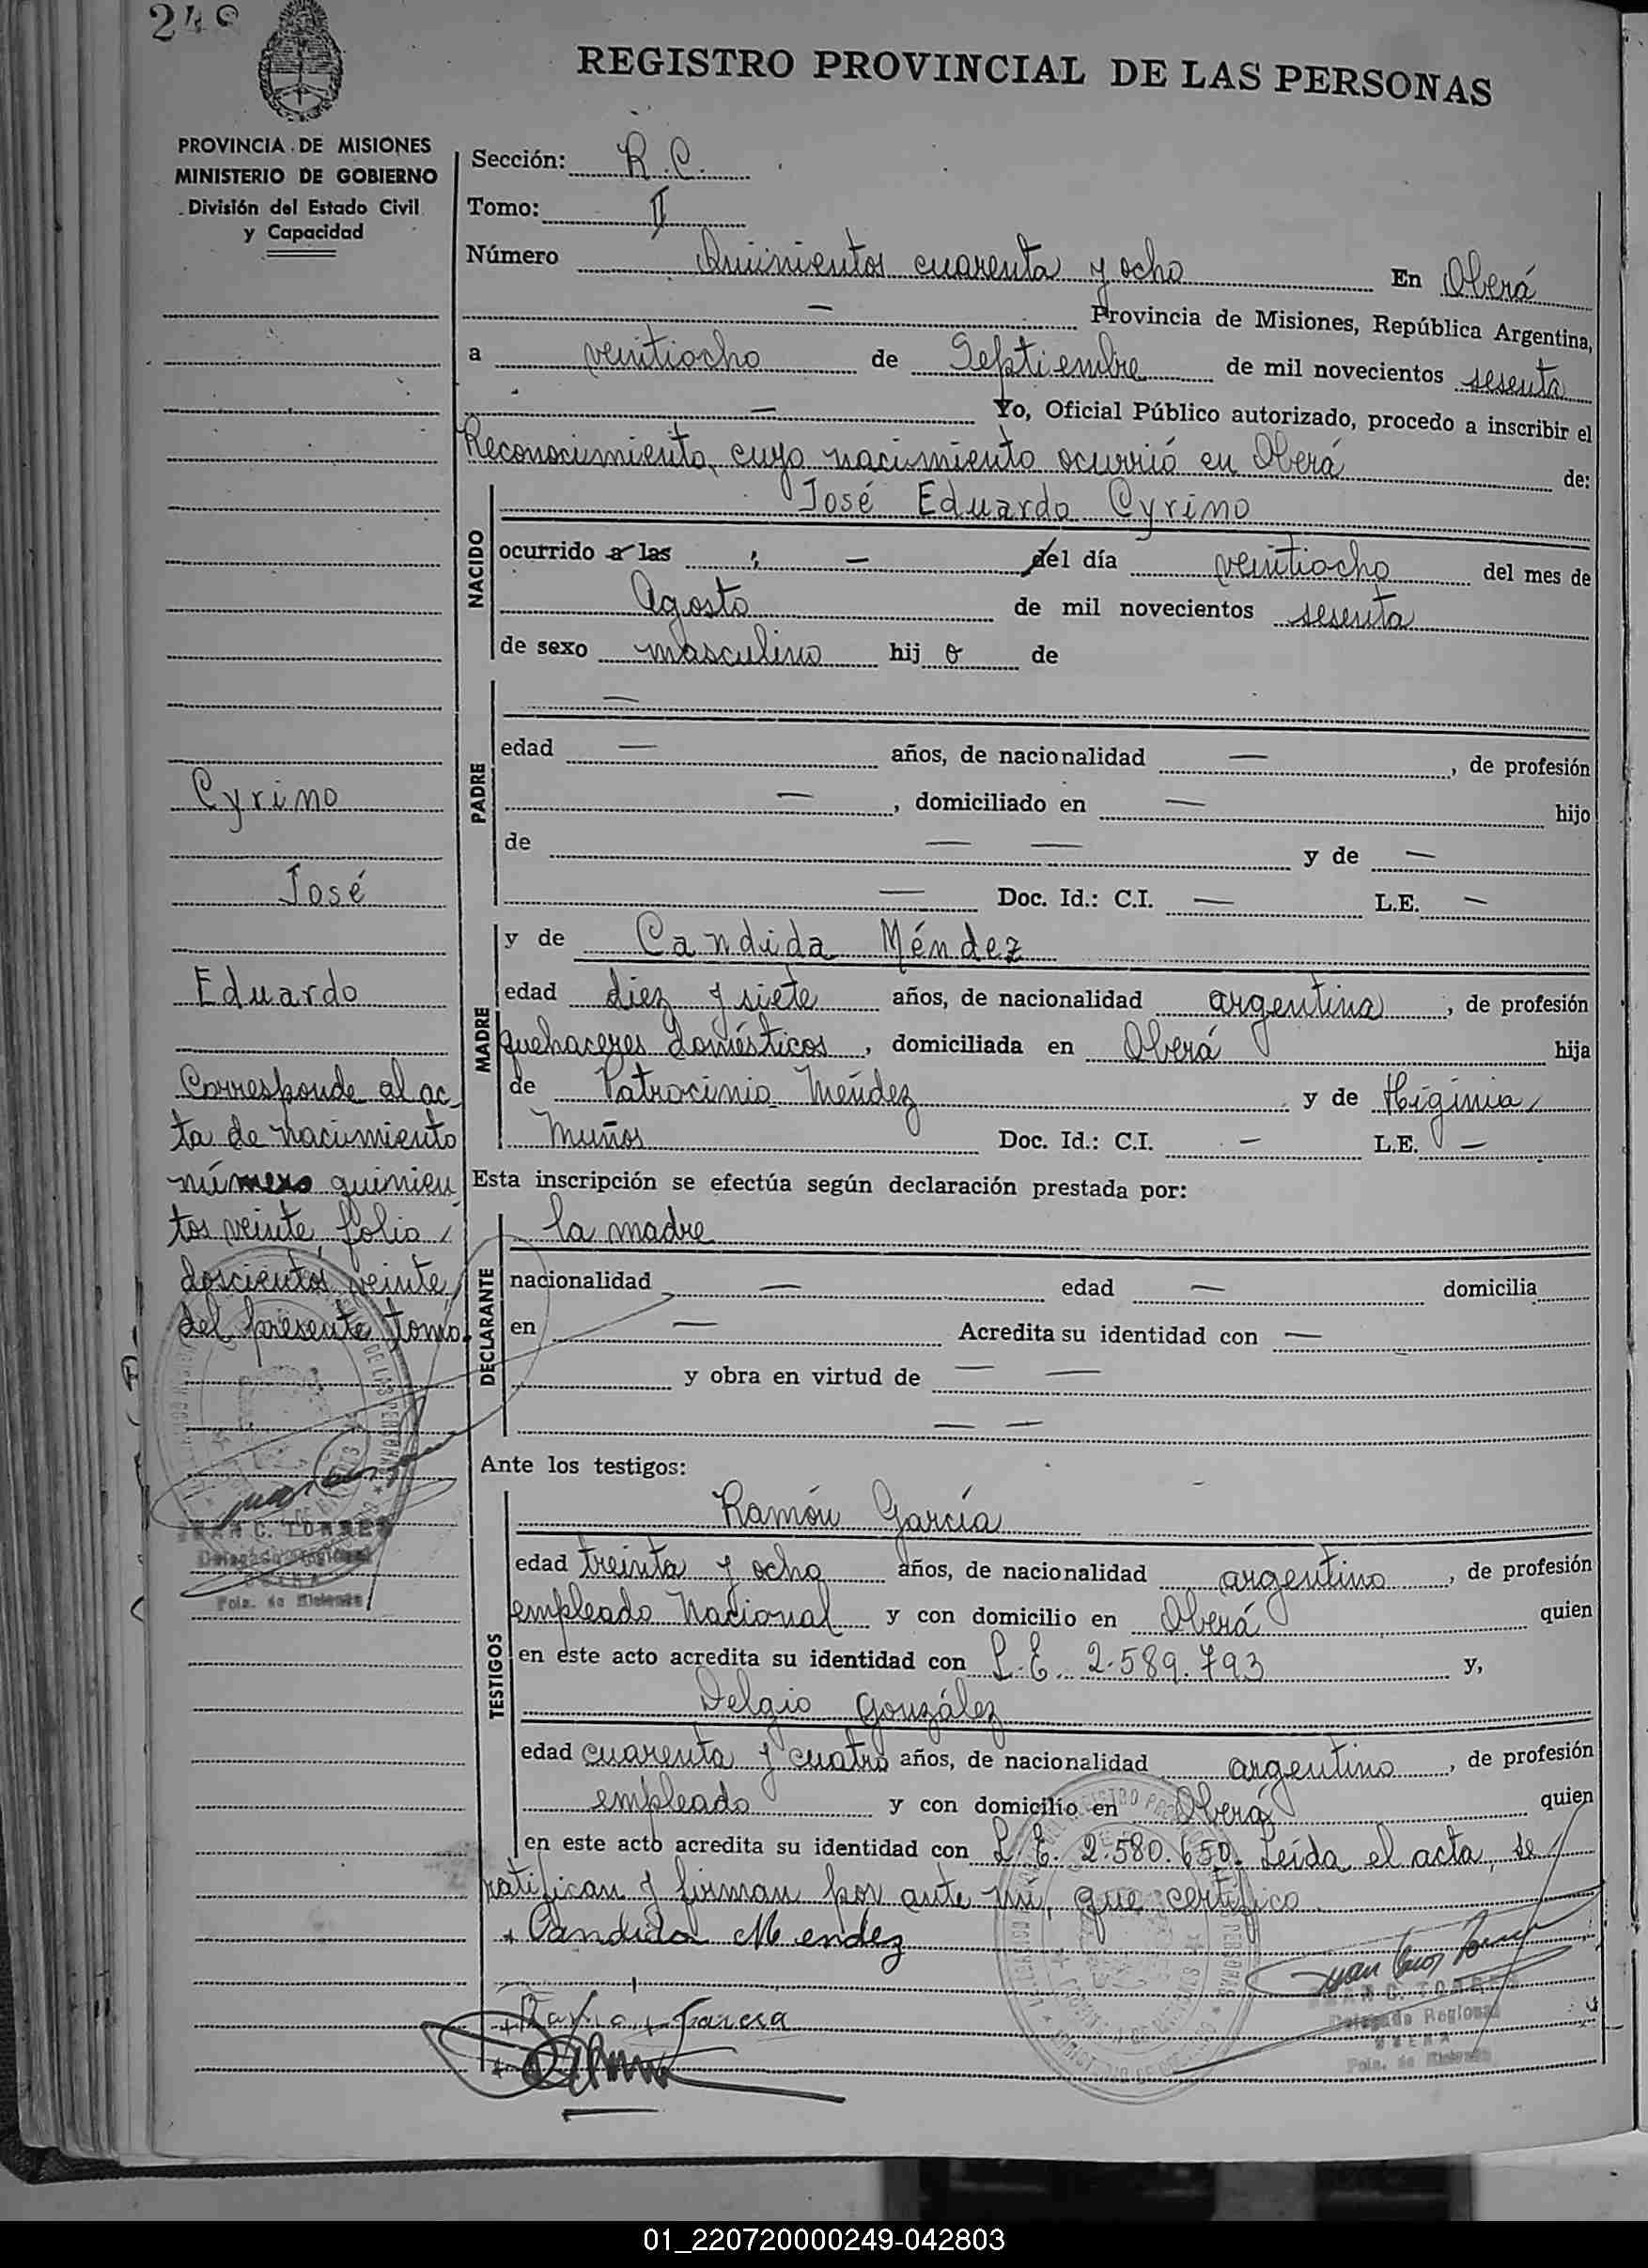 248
REGISTRO PROVINCIAL DE LAS PERSONAS
PROVINCIA DE MISIONES
MINISTERIO DE GOBIERNO
División del Estado Civil
y Capacidad
Sección: R.C.
Tomo: II
Número Quinientos cuarenta y ocho En Oberá
— Provincia de Misiones, República Argentina,
a veintiocho de Septiembre de mil novecientos sesenta
— Yo, Oficial Público autorizado, procedo a inscribir el
Reconocimiento, cuyo nacimiento ocurrió en Oberá de:
NACIDO
José Eduardo Cyrino
ocurrido a las ; — del día veintiocho del mes de
Agosto de mil novecientos sesenta
de sexo masculino hij o de
PADRE
—
edad — años, de nacionalidad — , de profesión
— , domiciliado en — hijo
de — — y de —
— Doc. Id.: C.I. — L.E. —
MADRE
y de Candida Méndez
edad diez y siete años, de nacionalidad argentina , de profesión
quehaceres domésticos , domiciliada en Oberá hija
de Patrocinio Méndez y de Higinia
Muños Doc. Id.: C.I. — L.E. —
Esta inscripción se efectúa según declaración prestada por:
DECLARANTE
la madre
nacionalidad — edad — domicilia
en — Acredita su identidad con —
y obra en virtud de — —
— —
Ante los testigos:
TESTIGOS
Ramón García
edad treinta y ocho años, de nacionalidad argentino , de profesión
empleado Nacional y con domicilio en Oberá quien
en este acto acredita su identidad con L.E. 2.589.793 y,
Delgio González
edad cuarenta y cuatro años, de nacionalidad argentino , de profesión
empleado y con domicilio en Oberá quien
en este acto acredita su identidad con L.E. 2.580.650. Leída el acta, se
ratifican y firman por ante mí, que certifico.
Candida Mendez
Cyrino
José
Eduardo
Corresponde al ac
ta de nacimiento
número quinien
tos veinte, folio
doscientos veinte
del presente tomo.
JUAN C. TORRES
Delegado Regional
OBERA
Pcia. de Misiones
JUAN C. TORRES
Delegado Regional
OBERA
Pcia. de Misiones
01_220720000249-042803